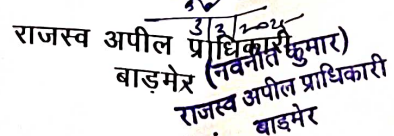 3/3/2025
राजस्व अपील प्राधिकारी
बाड़मेर
(नवनीत कुमार)
राजस्व अपील प्राधिकारी
बाडमेर